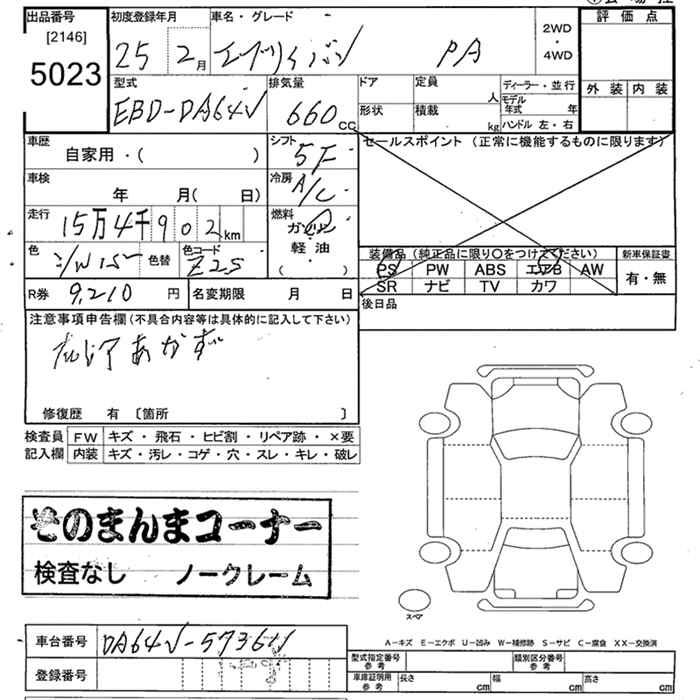 出品番号
[2146]
5023
初度登録年月
25 2月
車名・グレード
エブリィバン PA
2WD
・
4WD
評価点
外装 内装
型式
EBD-DA64V
排気量
660cc
ドア
形状
定員
人
積載
kg
ディーラー・並行
モデル年式 年
ハンドル 左・右
車歴
自家用・( )
シフト
5F
セールスポイント (正常に機能するものに限ります)
車検
年 月( 日)
冷房
A/C
走行
15万4千902km
燃料
ガソリン
軽・油
・
( )
色
シルバー
色替
色コード
Z2S
装備品(純正品に限り〇をつけてください)
PS PW ABS エアB AW
SR ナビ TV カワ
新車保証書
有・無
R券
9,210円
名変期限 月 日
後日品
注意事項申告欄(不具合内容等は具体的に記入して下さい)
あかず
修復歴 有 〔箇所 〕
検査員 FW キズ・飛石・ヒビ割・リペア跡・×要
記入欄 内装 キズ・汚レ・コゲ・穴・スレ・キレ・破レ
そのまんまコーナー
検査なし ノークレーム
スペア
A-キズ E-エクボ U-凹み W-補修跡 S-サビ C-腐食 XX-交換済
車台番号
登録番号
型式指定番号
参考
類別区分番号
参考
車庫証明用
参考
長さ cm
幅 cm
高さ cm